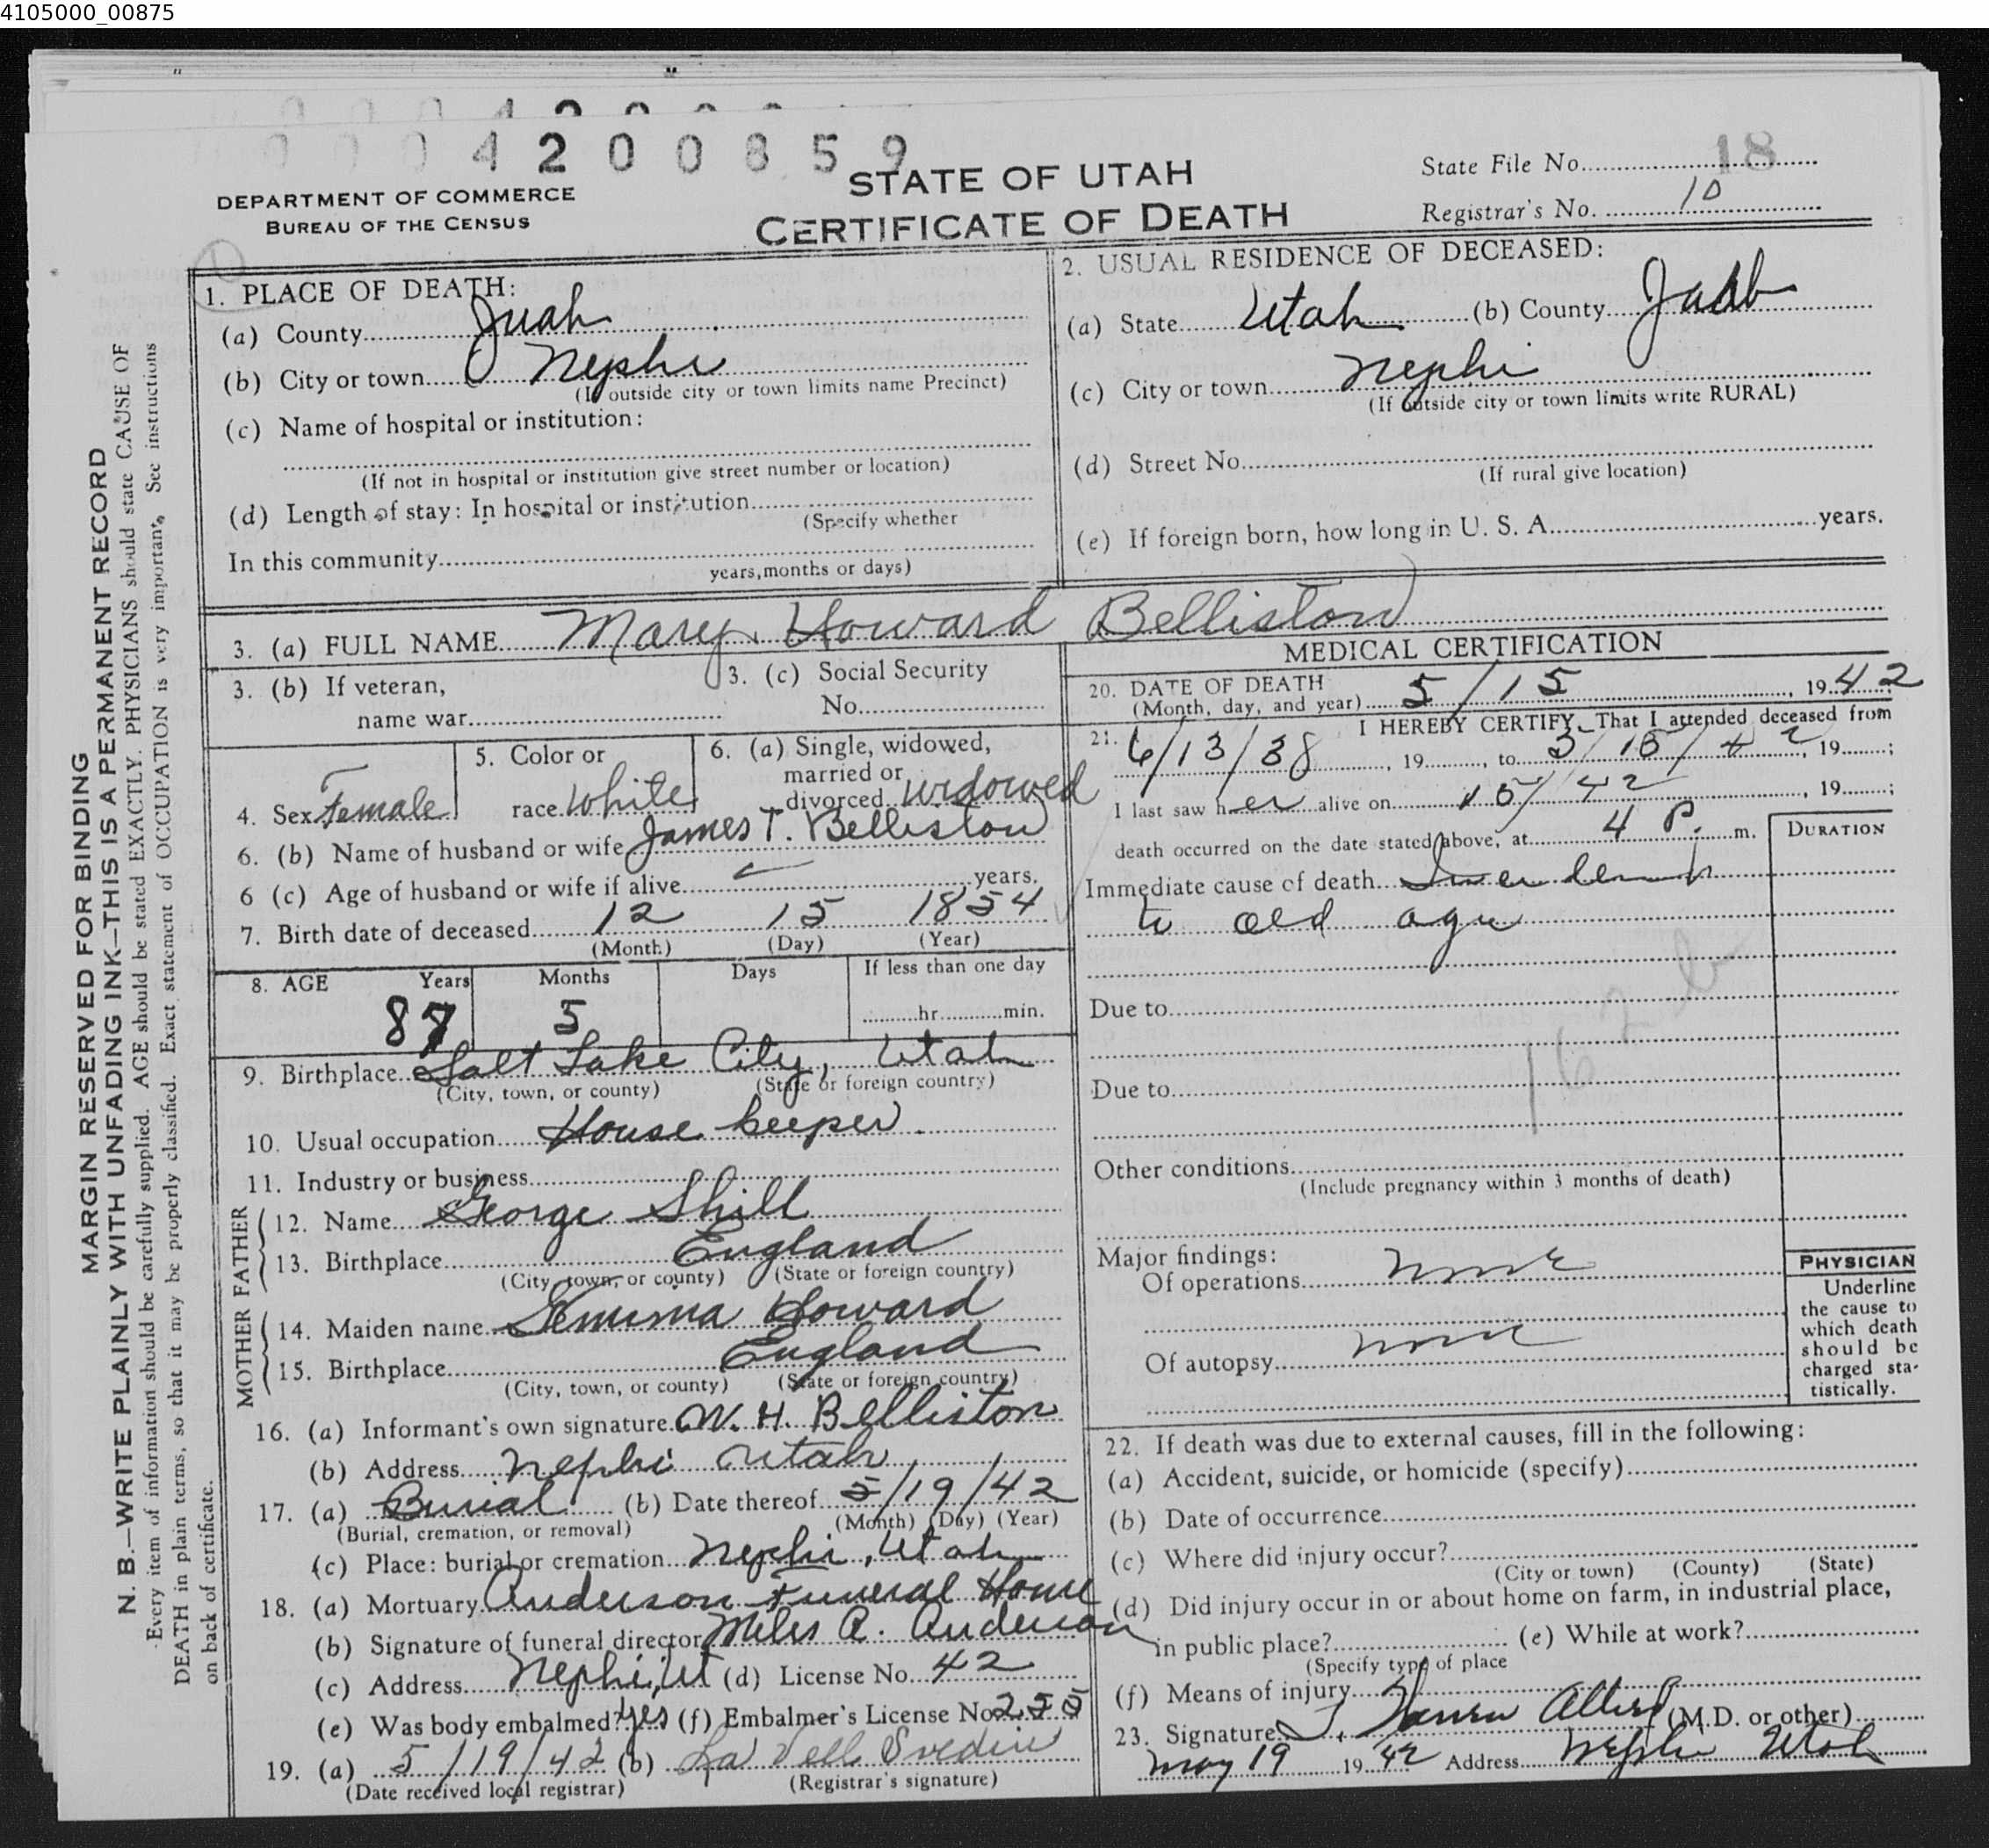 4105000_00875
0004200859
STATE OF UTAH
CERTIFICATE OF DEATH
DEPARTMENT OF COMMERCE
BUREAU OF THE CENSUS
State File No. 18
Registrar's No. 10
MARGIN RESERVED FOR BINDING
N. B.—WRITE PLAINLY WITH UNFADING INK—THIS IS A PERMANENT RECORD
Every item of information should be carefully supplied. AGE should be stated EXACTLY. PHYSICIANS should state CAUSE OF
DEATH in plain terms, so that it may be properly classified. Exact statement of OCCUPATION is very important. See instructions
on back of certificate.
1. PLACE OF DEATH:
(a) County Juab
(b) City or town Nephi
(If outside city or town limits name Precinct)
(c) Name of hospital or institution:
(If not in hospital or institution give street number or location)
(d) Length of stay: In hospital or institution
(Specify whether
In this community
years, months or days)
2. USUAL RESIDENCE OF DECEASED:
(a) State Utah (b) County Juab
(c) City or town Nephi
(If outside city or town limits write RURAL)
(d) Street No.
(If rural give location)
(e) If foreign born, how long in U. S. A. years.
3. (a) FULL NAME Mary Howard Belliston
3. (b) If veteran,
name war
3. (c) Social Security
No.
4. Sex Female
5. Color or
race White
6. (a) Single, widowed,
married or
divorced widowed
6. (b) Name of husband or wife James T. Belliston
6 (c) Age of husband or wife if alive years.
7. Birth date of deceased 12 15 1854
(Month) (Day) (Year)
8. AGE Years Months Days If less than one day
87 5 hr. min.
9. Birthplace Salt Lake City, Utah
(City, town, or county) (State or foreign country)
10. Usual occupation House keeper
11. Industry or business
FATHER
12. Name George Shill
13. Birthplace England
(City, town, or county) (State or foreign country)
MOTHER
14. Maiden name Jemima Howard
15. Birthplace England
(City, town, or county) (State or foreign country)
16. (a) Informant's own signature W. H. Belliston
(b) Address Nephi Utah
17. (a) Burial (b) Date thereof 5/19/42
(Burial, cremation, or removal) (Month) (Day) (Year)
(c) Place: burial or cremation Nephi, Utah
18. (a) Mortuary Anderson Funeral Home
(b) Signature of funeral director Miles A. Anderson
(c) Address Nephi, Ut (d) License No. 42
(e) Was body embalmed? Yes (f) Embalmer's License No. 255
19. (a) 5/19/42 (b) La Vell Svedin
(Date received local registrar) (Registrar's signature)
MEDICAL CERTIFICATION
20. DATE OF DEATH
(Month, day, and year) 5/15, 1942
21. I HEREBY CERTIFY, That I attended deceased from
6/13/38, 19, to 5/15/42, 19;
I last saw her alive on 15/42, 19;
death occurred on the date stated above, at 4 P. m.
DURATION
Immediate cause of death
to old age
162 b
Due to
Due to
Other conditions
(Include pregnancy within 3 months of death)
Major findings:
Of operations none
Of autopsy none
PHYSICIAN
Underline
the cause to
which death
should be
charged sta-
tistically.
22. If death was due to external causes, fill in the following:
(a) Accident, suicide, or homicide (specify)
(b) Date of occurrence
(c) Where did injury occur?
(City or town) (County) (State)
(d) Did injury occur in or about home on farm, in industrial place,
in public place? (e) While at work?
(Specify type of place
(f) Means of injury
23. Signature (M.D. or other)
May 19 1942 Address Nephi Utah